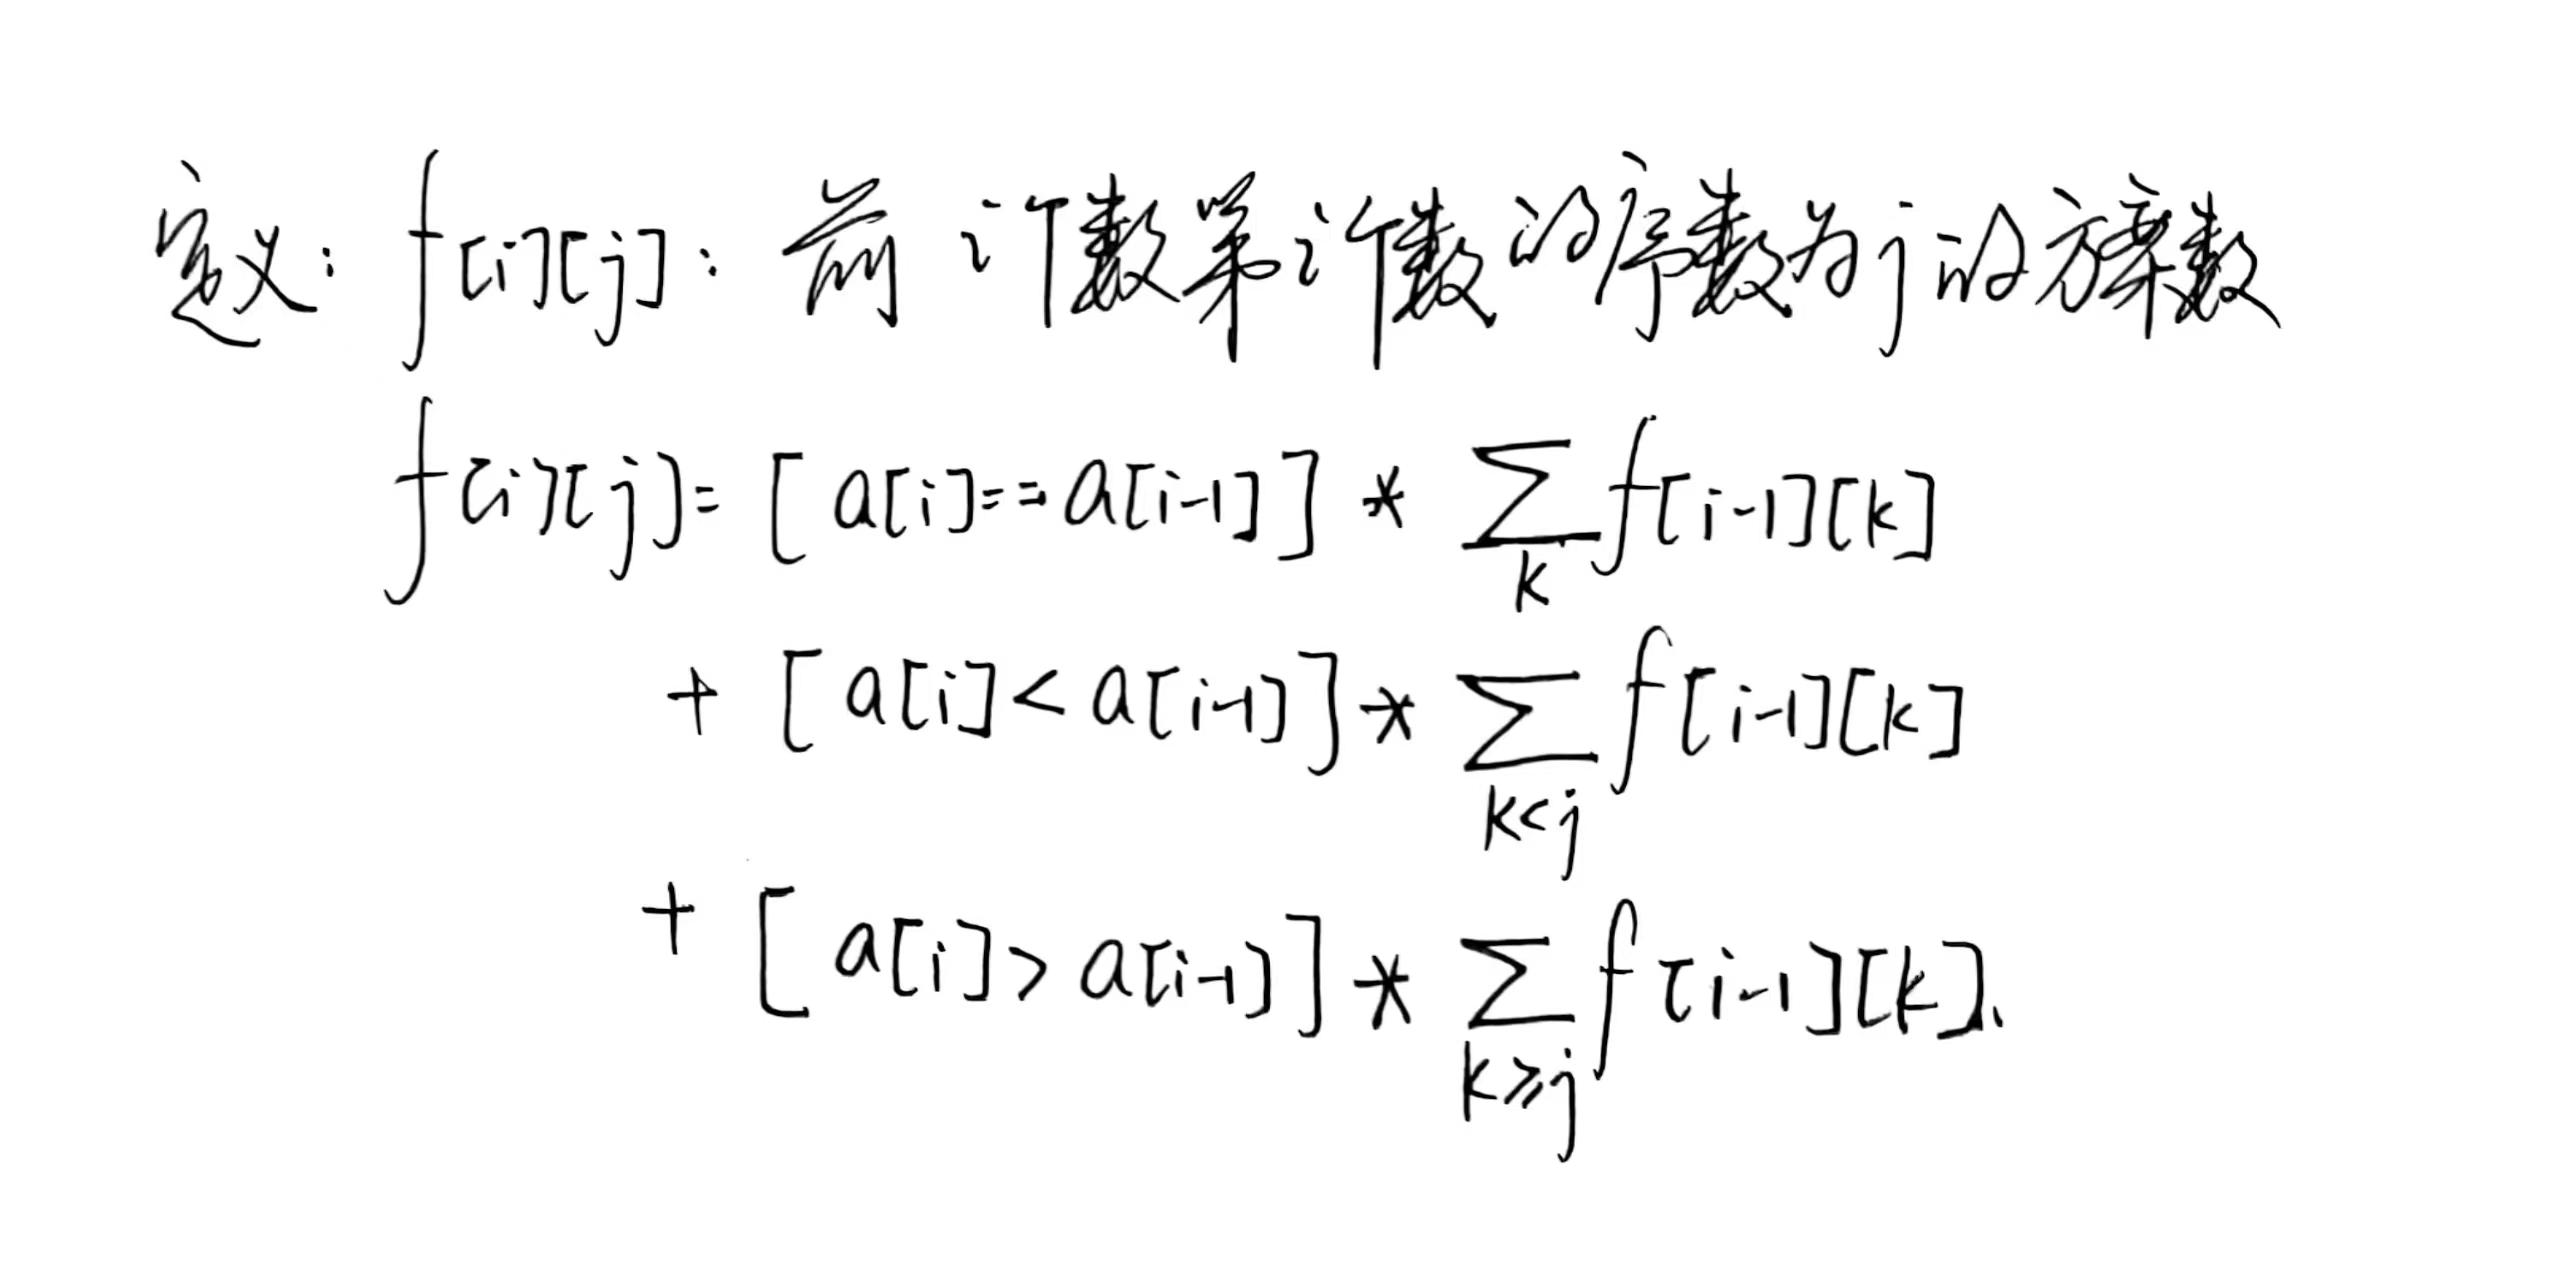 定义: f[i][j]: 前i个数第i个数的序数为j的方案数
f[i][j]= [a[i]==a[i-1]] * ∑ f[i-1][k]
k
+ [a[i]<a[i-1]] * ∑ f[i-1][k]
k<j
+ [a[i]>a[i-1]] * ∑ f[i-1][k].
k≥j